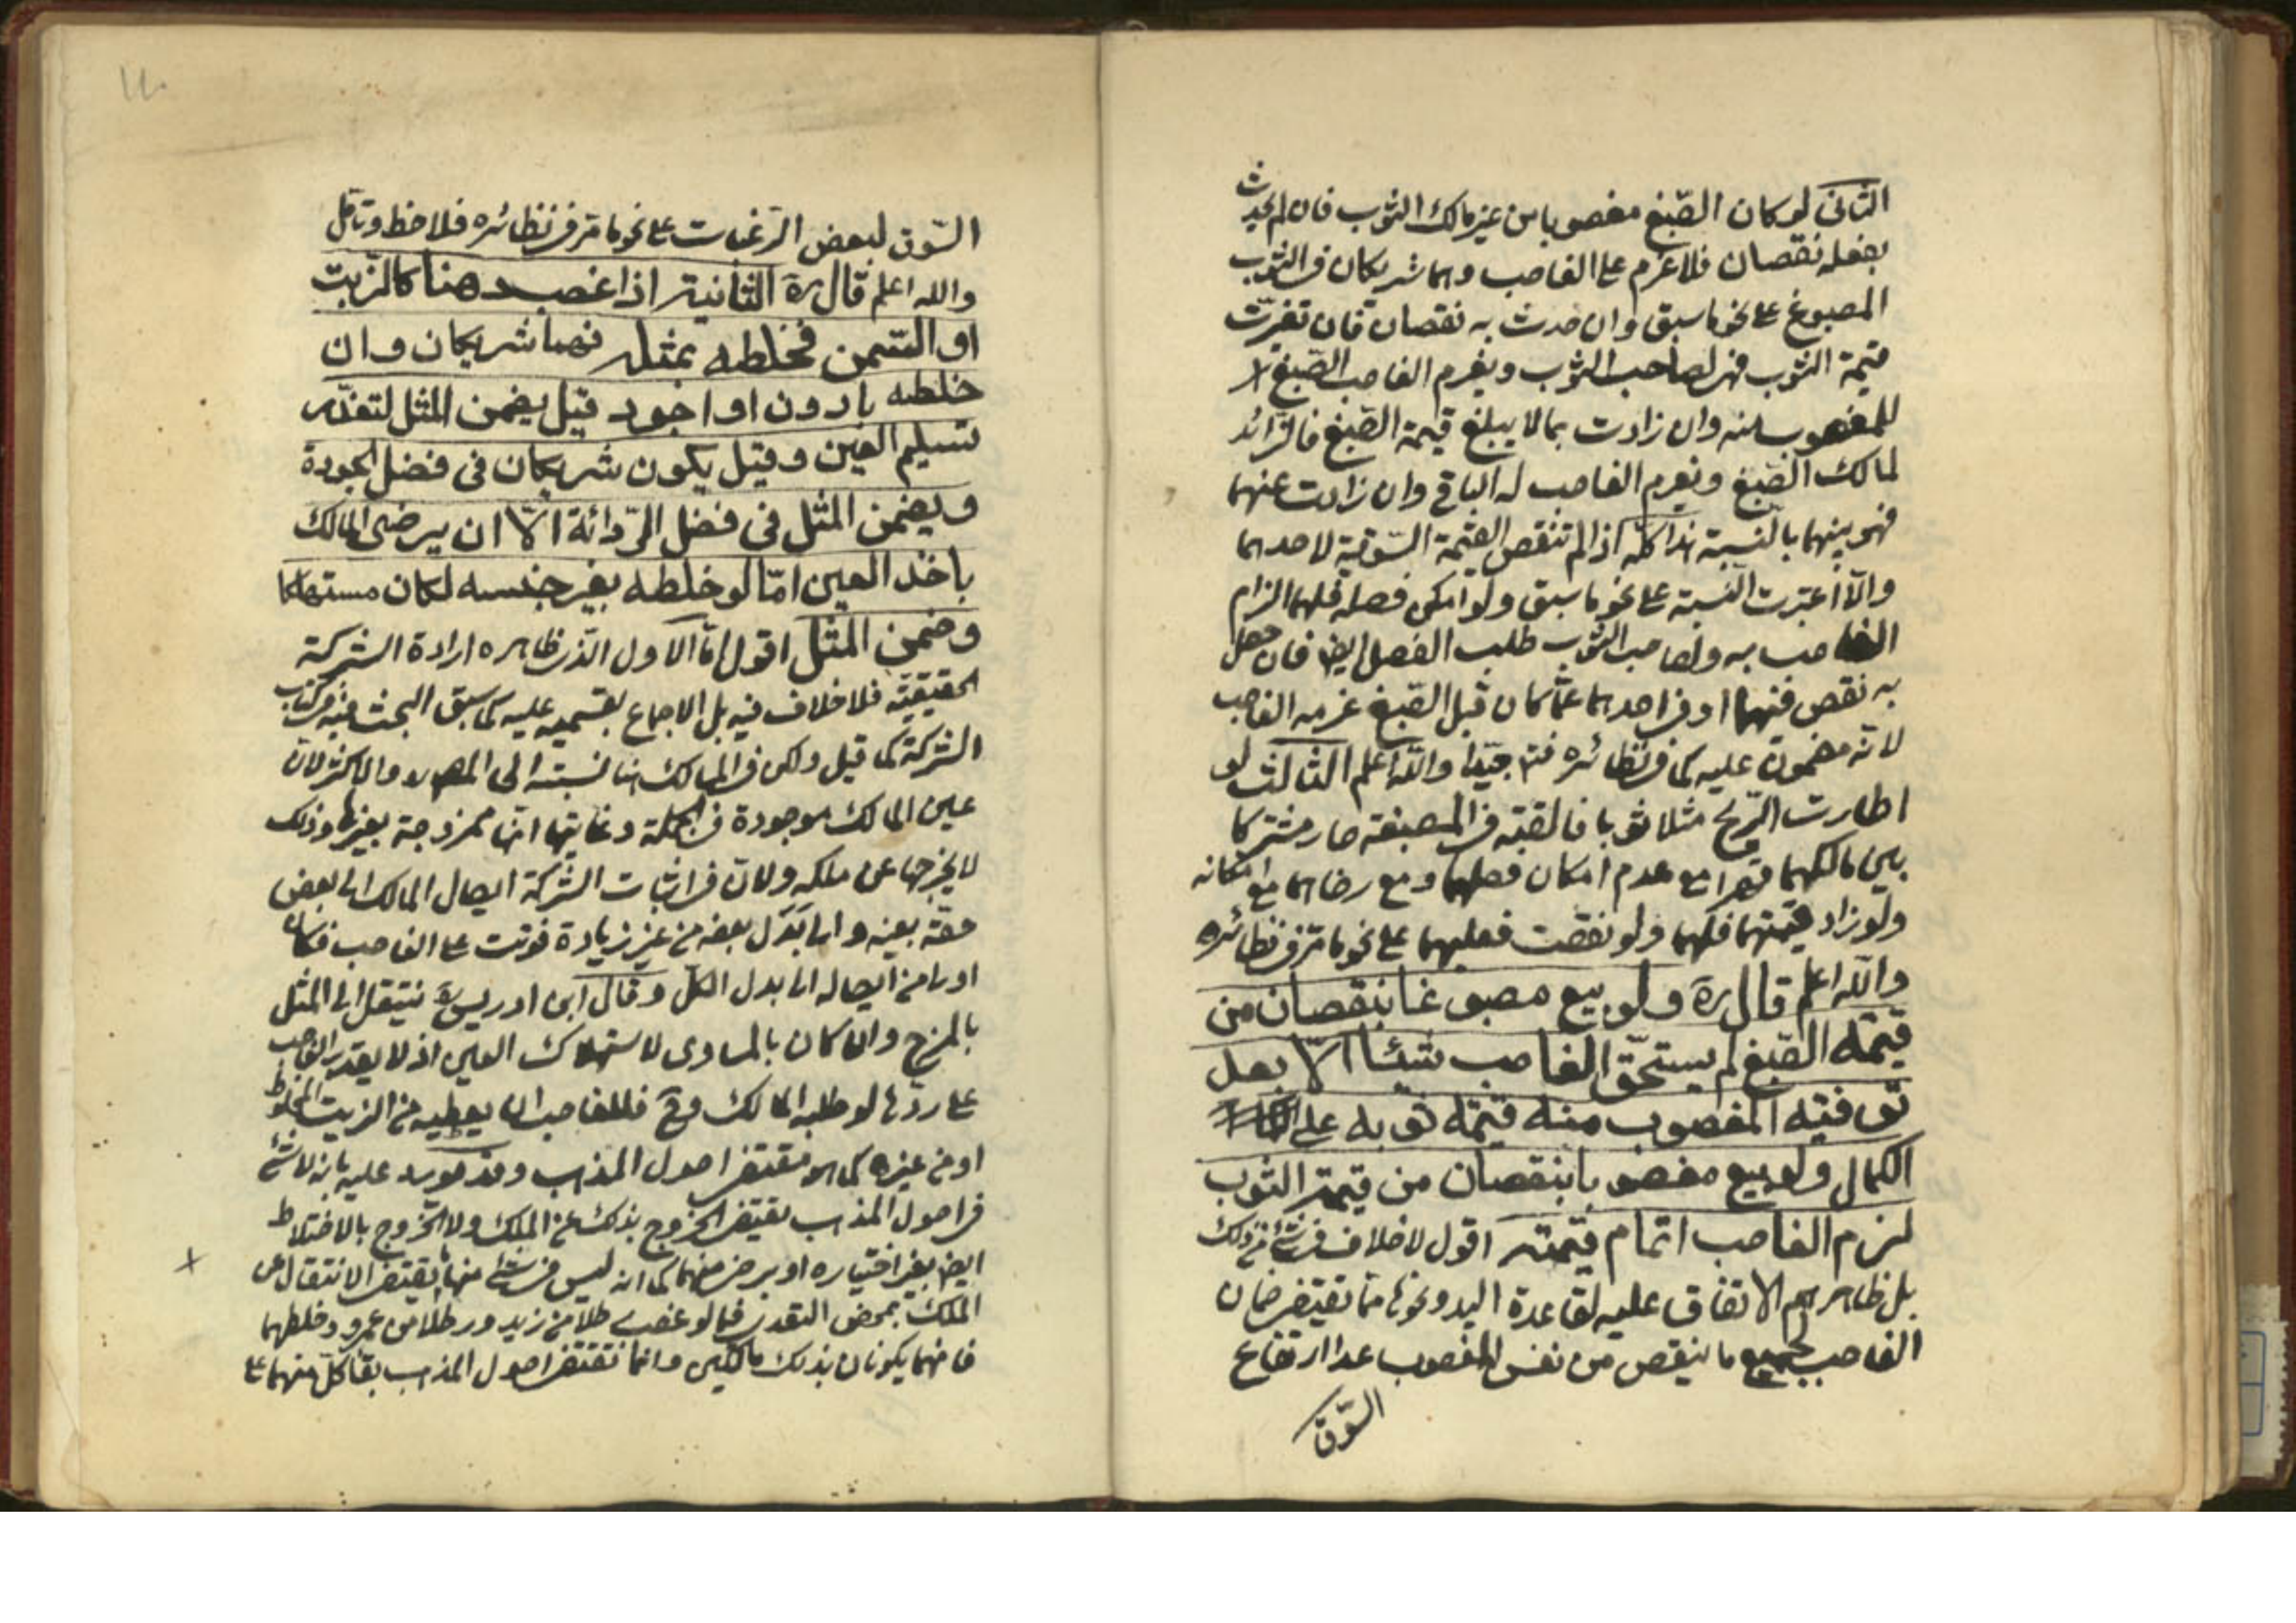 الثانى لو كان الصّبغ مغصوبا من غير مالك الثوب فان لم يحدث
بفعله نقصان فلا غرم على الغاصب وهما شريكان فى الثوب
المصبوغ على نحو ما سبق وان حدث به نقصان فان تغيرت
قيمة الثوب فهى لصاحب الثوب ويغرم الغاصب الصّبغ
للمغصوب منه وان زادت بما لا يبلغ قيمة الصّبغ فالزّائد
لمالك الصّبغ ويغرم الغاصب له الباقى وان زادت عنهما
فهو بينهما بالنّسبة هذا كلّه اذا لم تنقص القيمة السّوقية لاحدهما
والّا اعتبرت النّسبة على نحو ما سبق ولو امكن فصله فلهما الزام
الغاصب به ولصاحب الثوب طلب الفصل ايضا فان حصل
به نقص فيهما او فى احدهما عمّا كان قبل الصّبغ غرمه الغاصب
لانّه مضمون عليه كما فى نظائره جيّدا والله اعلم الثالث لو
اطارت الرّيح مثلا ثوبا فالقته فى المصبغة صار مشتركا
بين مالكيهما قهرا مع عدم امكان فصلهما ومع رضاهما مع امكانه
ولو زاد قيمتهما فلهما ولو نقصت فعليهما على نحو ما مرّ فى نظائره
والله اعلم قال ره ولو بيع مصبوغا بنقصان من
قيمة الصّبغ لم يستحقّ الغاصب شيئا الّا بعد
توفية المغصوب منه قيمة ثوبه على
الكمال ولو بيع مغصوبا بنقصان من قيمة الثوب
لزم الغاصب اتمام قيمته اقول لا خلاف فى شئ من ذلك
بل ظاهرهم الاتفاق عليه لقاعدة اليد ونحوها ممّا يقتضى ضمان
الغاصب لجميع ما ينقص من نفس المغصوب عدا ارتفاع
السّوق
١١٠
السّوق لبعض الرّغبات على نحو ما مرّ فى نظائره فلاحظ وتامّل
والله اعلم قال ره الثانية اذا غصب دهنا كالزّيت
او السّمن فخلطه بمثله فهما شريكان وان
خلطه بادون او اجود قيل يضمن المثل لتعذّر
تسليم العين وقيل يكون شريكان فى فضل الجودة
ويضمن المثل فى فضل الرّدائة الّا ان يرضى المالك
باخذ العين امّا لو خلطه بغير جنسه لكان مستهلكا
وضمن المثل اقول امّا الاول الّذى ظاهره ارادة الشركة
الحقيقيّة فلا خلاف فيه بل الاجماع بقسميه عليه كما سبق البحث فيه فى كتاب
الشركة كما قيل ولكن فى المسالك هنا نسبته الى المشهور والاكثر لانّ
عين المالك موجودة فى الجملة وغايتها انّها ممزوجة بغيرها وذلك
لا يخرجها عن ملكه ولانّ فى اثبات الشّركة ايصال المالك الى بعض
حقّه بعينه والى بدل بعضه من غير زيادة فوتت على الغاصب فكان
اولى من ايصاله الى بدل الكلّ وقال ابن ادريس ره ينتقل الى المثل
بالمزج وان كان بالمساوى لاستهلاك العين اذ لا يقدر الغاصب
على ردّها لو طلبه المالك وح فللغاصب ان يعطيه من الزيت المخلوط
او من غيره كما هو مقتضى اصول المذهب وقد يورد عليه بانه لا شئ
فى اصول المذهب يقتضى الخروج بذلك عن الملك ولا الخروج بالاختلاط
ايضا بغير اختياره او برضى منهما كما انه ليس فى شئ منها يقتضى الانتقال عن
الملك بمحض التعدى فيما لو غصب رطلا من زيد ورطلا من عمرو وخلطهما
فانهما يكونان بذلك مالكين وانما تقتضى اصول المذهب بقا كلّ منهما على